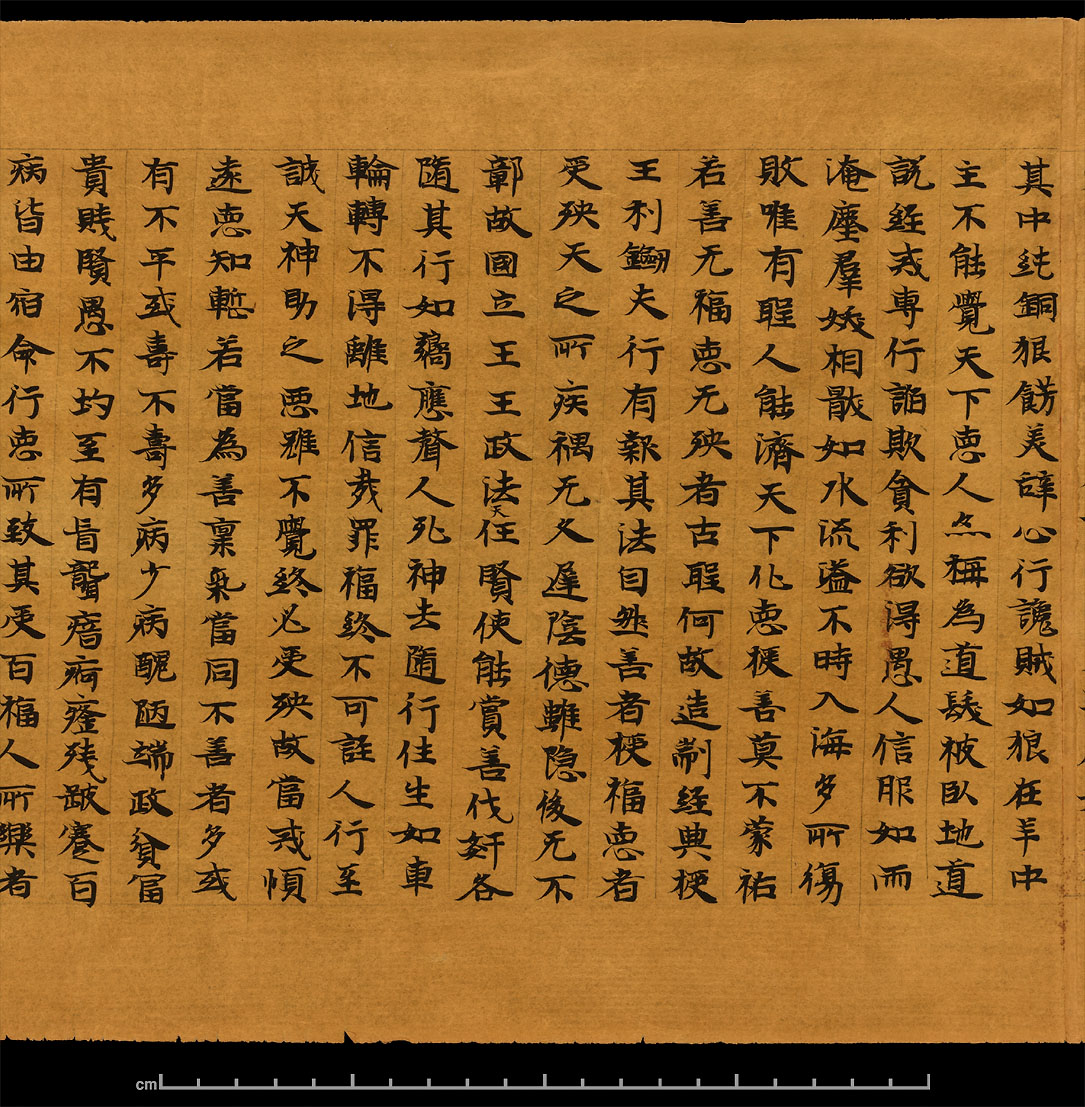 其中純銅狠餝美辞心行讒賊如狼在羊中
主不能覺天下惡人亦稱為道髮被臥地道
說經戒專行諂欺貪利欲得愚人信服如雨
淹塵羣妖相䬃如水流溢不時入海多所傷
敗唯有聖人能濟天下化惡授善莫不蒙祐
若善无福惡无殃者古聖何故造制經典授
王利夫行有報其法自然善者授福惡者
受殃天之所疾禍无久遲陰德雖隐後无不
鄣故國立王王政法天任賢使能賞善伐奸各
隨其行如嚮應聲人死神去隨行住生如車
輪轉不得離地信哉罪福終不可誣人行至
誠天神助之惡雖不覺終必受殃故當戒慎
遠惡知慙若當為善稟氣當同不善者多或
有不平或壽不壽多病少病醜陋端政貧富
貴賤賢愚不均至有盲聾瘖瘂癃残跛蹇百
病皆由宿命行惡所致其受百福人所樂者